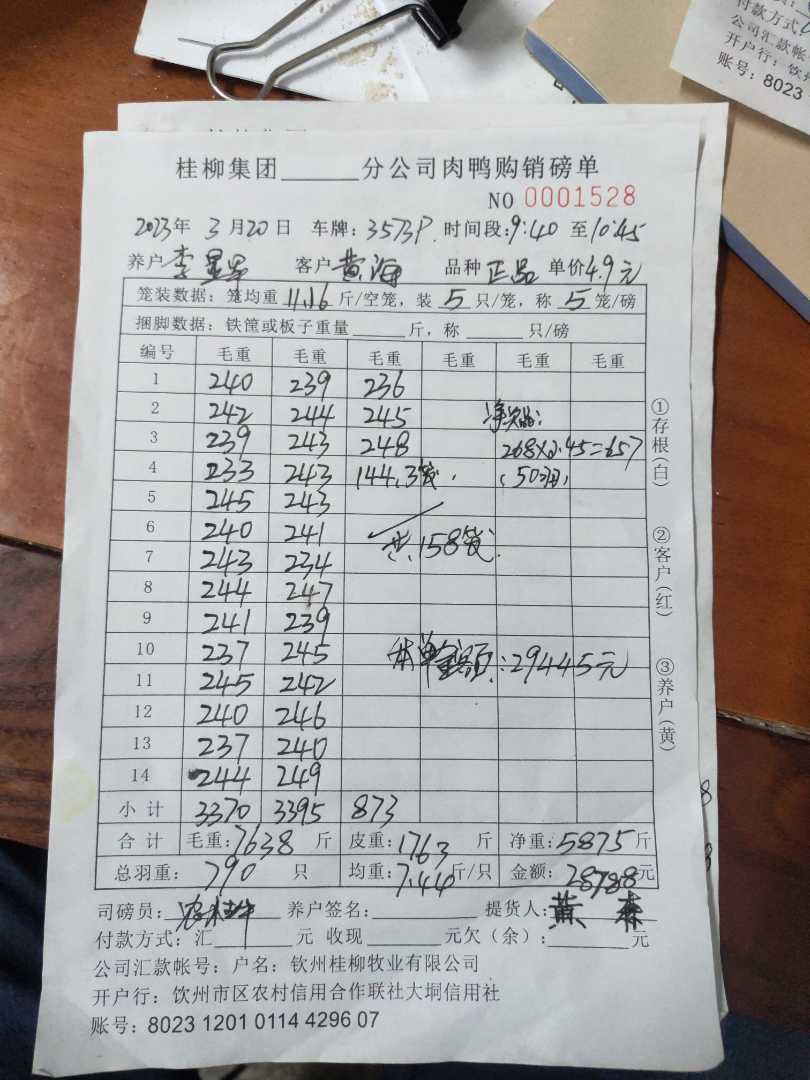 付款方式
公司汇款帐
开户行：钦州
账号：8023
桂柳集团______分公司肉鸭购销磅单
NO 0001528
2023年 3月20日 车牌：3573P. 时间段：9:40 至10:45
养户 客户 黄海 品种 正品 单价4.9元
笼装数据：笼均重11.16斤/空笼，装 5 只/笼，称 5 笼/磅
捆脚数据：铁筐或板子重量______斤，称______只/磅
编号 毛重 毛重 毛重 毛重 毛重 毛重
1 240 239 236
2 242 244 245 净欠品：
3 239 243 248 268×2.45=657
4 233 243 144.3笼.
5 245 243
6 240 241
7 243 234 共158笼.
8 244 247
9 241 239
10 237 245 本单金额：29445元
11 245 242
12 240 246
13 237 240
14 244 249
小计 3370 3395 873
合计 毛重：7638 斤 皮重：1763 斤 净重：5875斤
总羽重：790 只 均重：7.44斤/只 金额：28788元
司磅员： 养户签名：______ 提货人：黄
付款方式：汇______元 收现______元欠（余）：______元
公司汇款帐号：户名：钦州桂柳牧业有限公司
开户行：饮州市区农村信用合作联社大垌信用社
账号：8023 1201 0114 4296 07
①存根（白）
②客户（红）
③养户（黄）